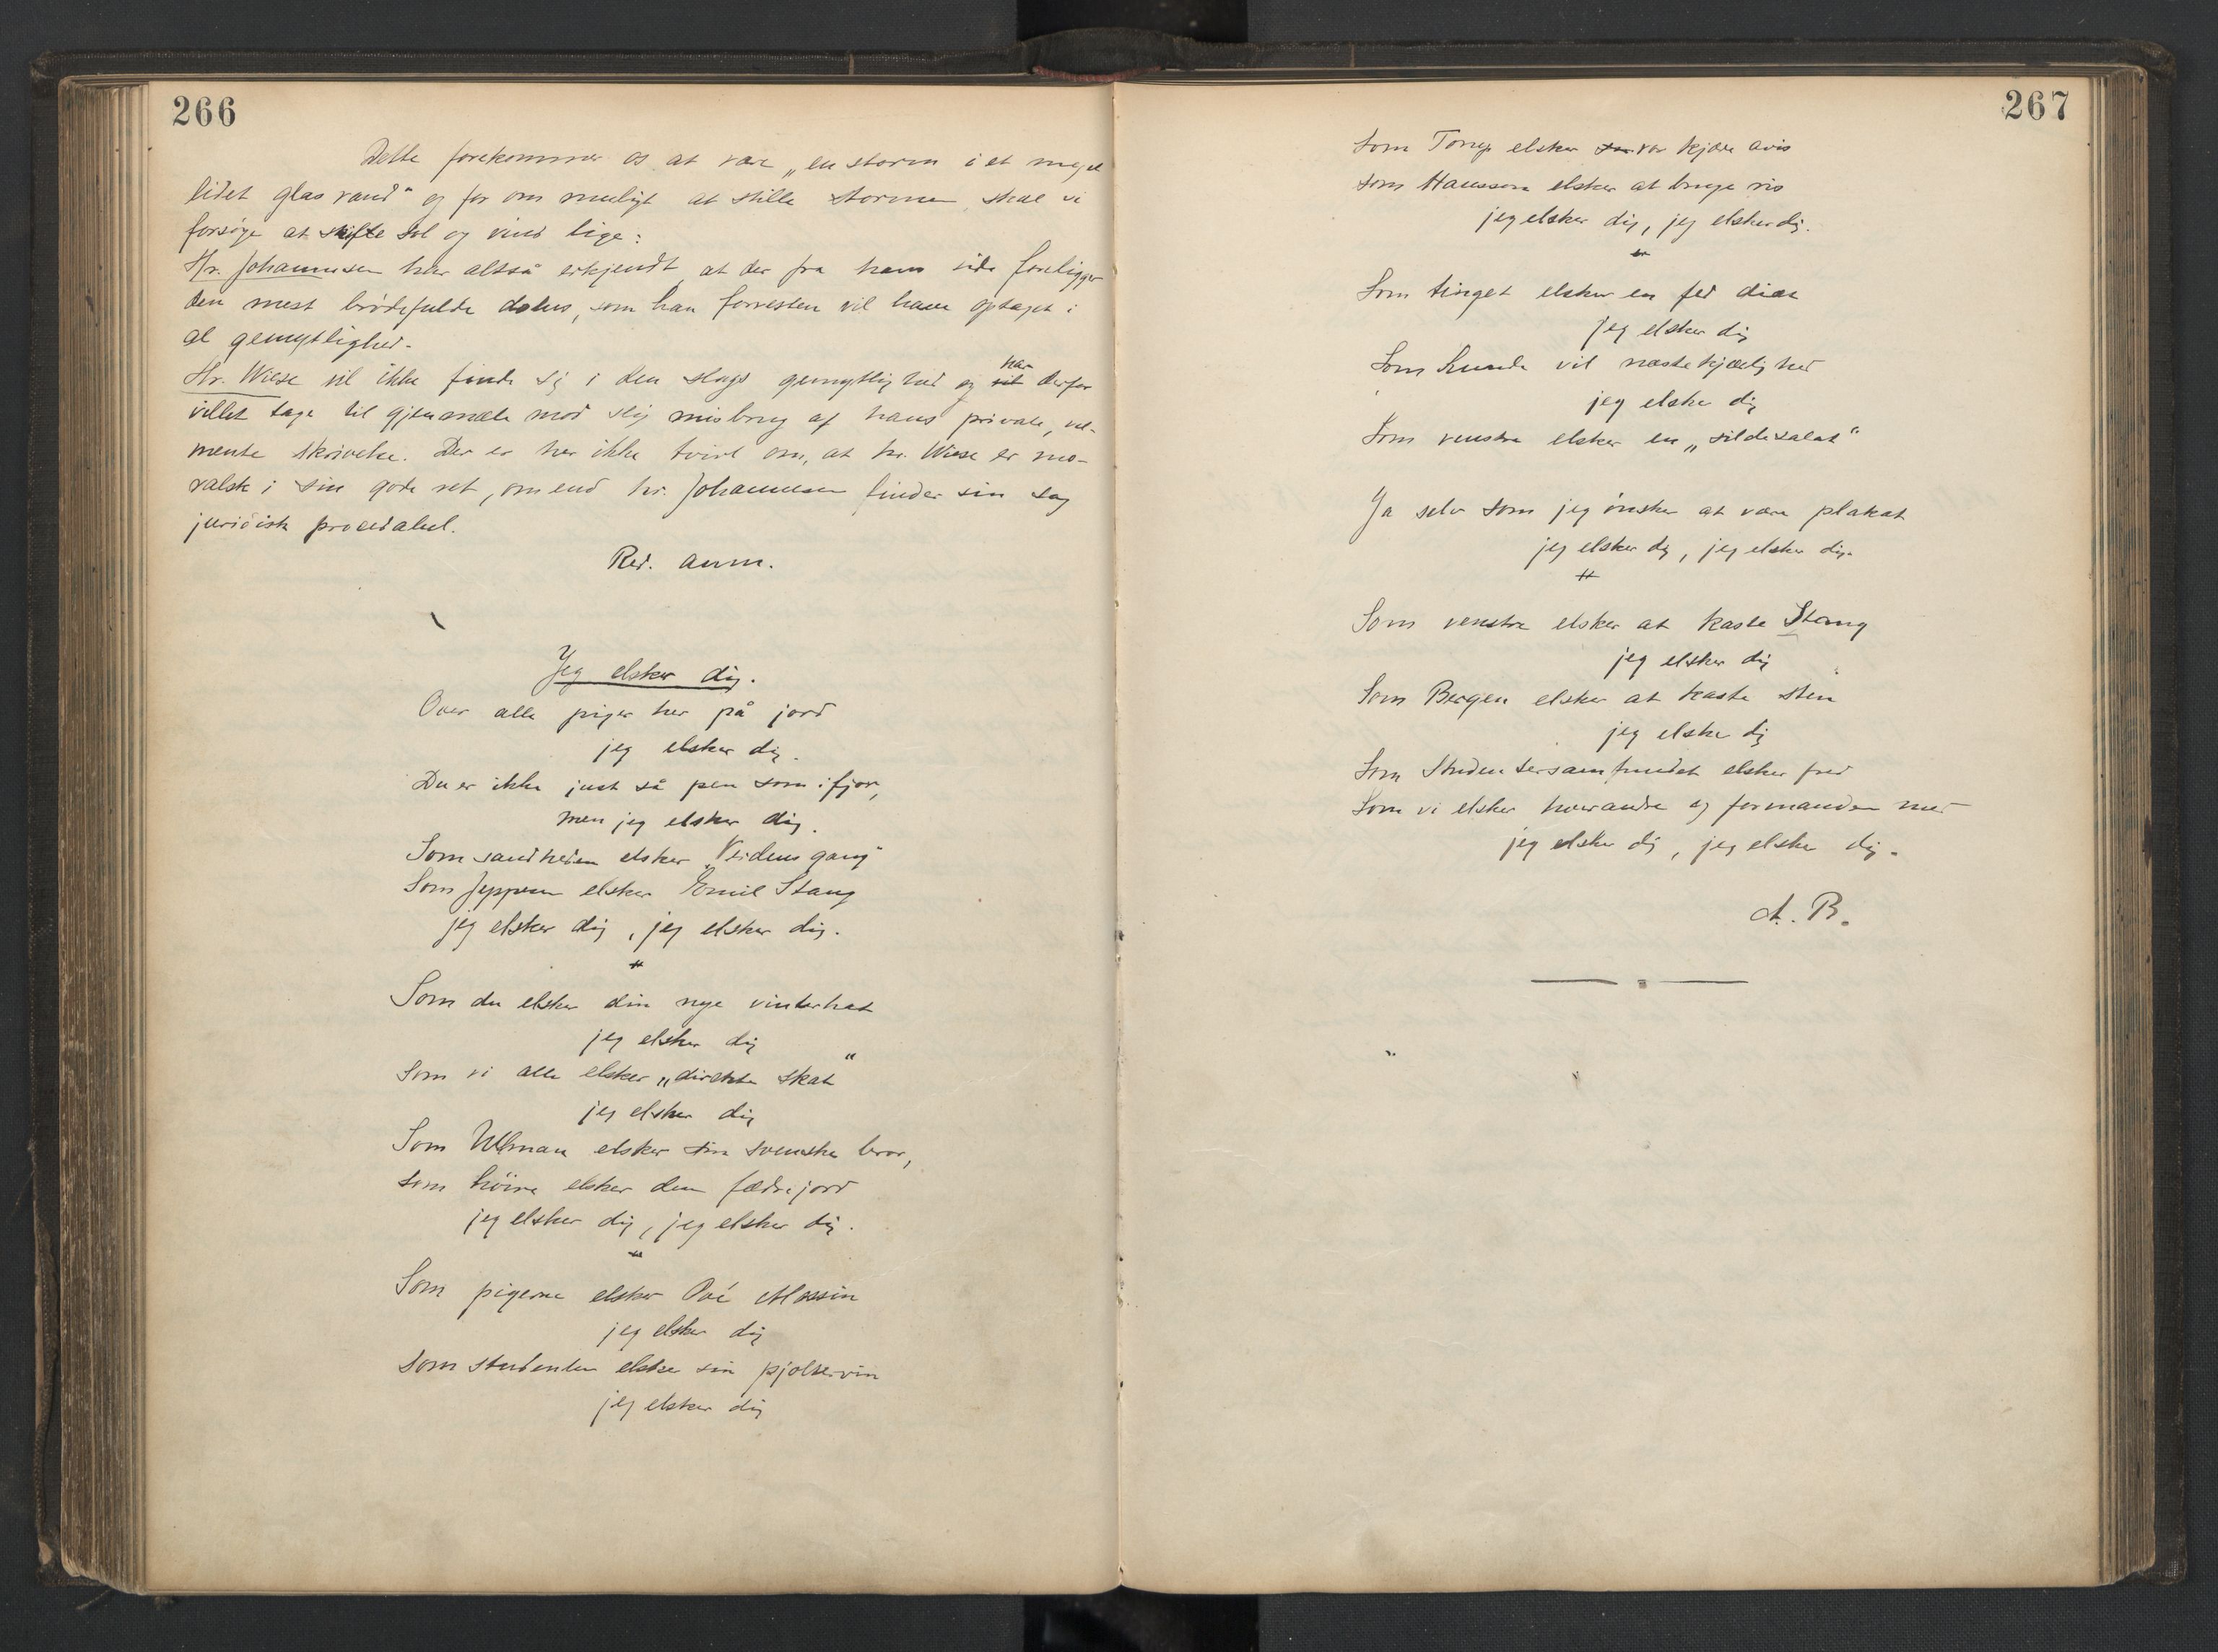 266
Dette forekommer os at være „en storm i et meget
lidet glas vand“ og for om muligt at stille stormen, skal vi
forsøge at skifte sol og vind lige:
Hr. Johannesen har altså erkjendt, at der fra hans side foreligger
den mest brødefulde dolus, som han forresten vil have optaget i
al gemytlighed.
Hr. Wiese vil ikke finde sig i den slags gemytlighed og vil har derfor
villet tage til gjenmæle mod slig misbrug af hans private, vel-
mente skrivelse. Der er her ikke tvivl om, at hr. Wiese er mo-
ralsk i sin gode ret, om end hr. Johannesen finder sin sag
juridisk procedabel.
Red. anm.
Jeg elsker dig.
Over alle piger her på jord
jeg elsker dig.
Du er ikke just så pen som ifjor,
men jeg elsker dig.
Som sandheden elsker „Verdens gang“
Som Jeppesen elsker Emil Stang
jeg elsker dig, jeg elsker dig.
Som du elsker din nye vinterhat
jeg elsker dig
Som vi alle elsker „direkte skat“
jeg elsker dig
Som Ullman elsker sin svenske bror,
som høire elsker den fædrejord
jeg elsker dig, jeg elsker dig.
Som pigerne elsker
jeg elsker dig
Som studenten elsker sin pjoltervin
jeg elsker dig
267
Som Torup elsker vor kjære avis
som Hansson elsker at bruge ris
jeg elsker dig, jeg elsker dig.
Som tinget elsker en fed diæt
jeg elsker dig
Som Lunde vil næstekjærlighed
jeg elsker dig
Som venstre elsker en „sildesalat“
Ja selv som jeg ønsker at være plakat
jeg elsker dig, jeg elsker dig.
Som venstre elsker at kaste Stang
jeg elsker dig
Som Bergen elsker at kaste sten
jeg elsker dig
Som Studentersamfundet elsker fred
Som vi elsker hverandre og formanden med
jeg elsker dig, jeg elsker dig.
A. B.